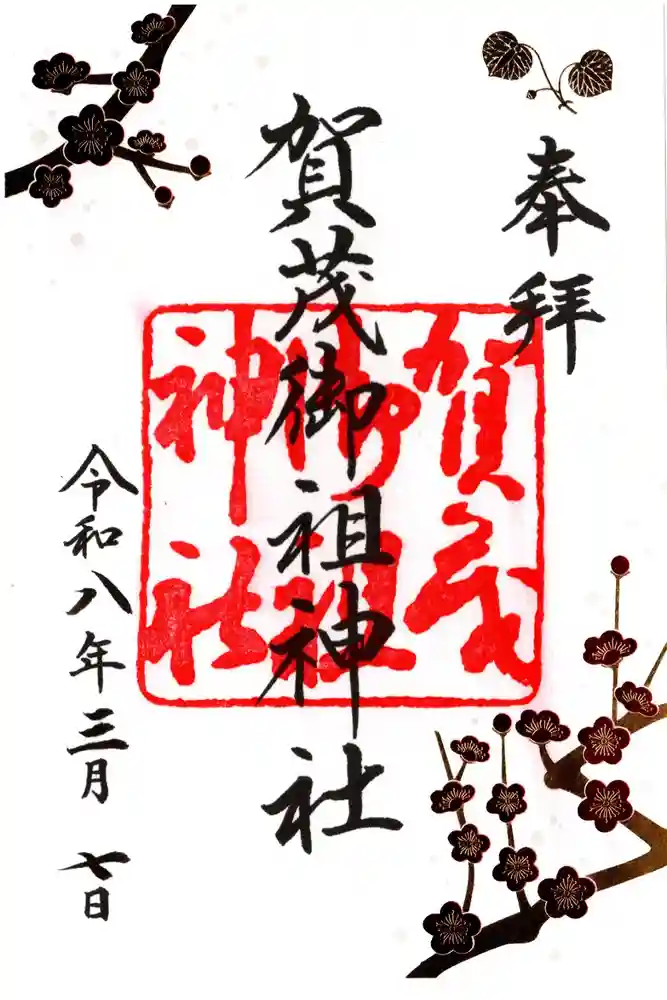 奉拝
賀茂御祖神社
賀茂
御祖
神社
令和八年三月七日